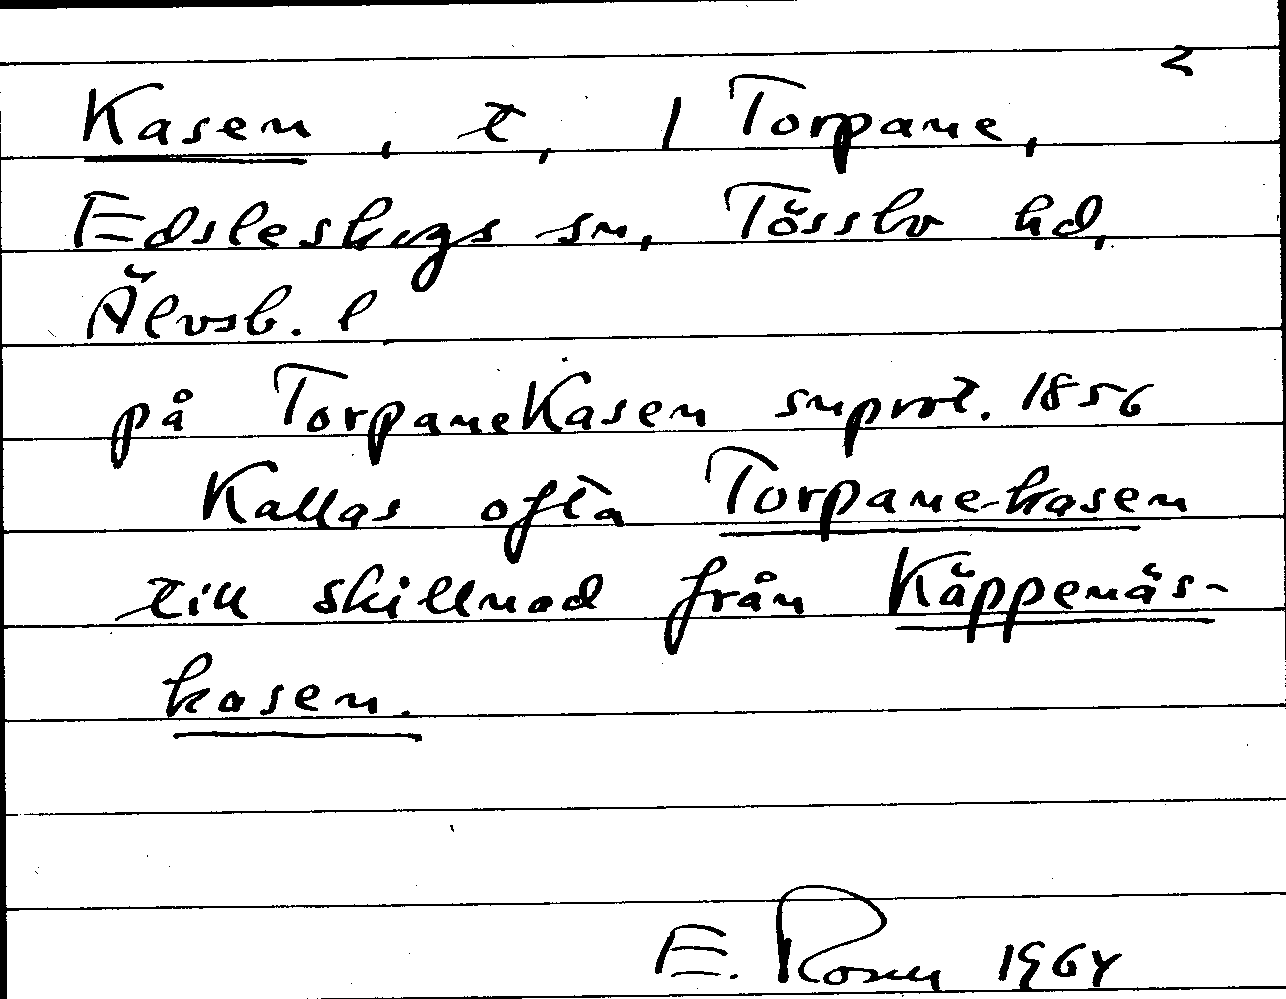 2
Kasen, t, / Torpane,
Edsleskogs sn, Tössbo hd,
Älvsb. l
på TorpaneKasen snprot. 1856
Kallas ofta Torpane-kasen
till skillnad från Käppenäs-
kasen.
E. Rosen 1964